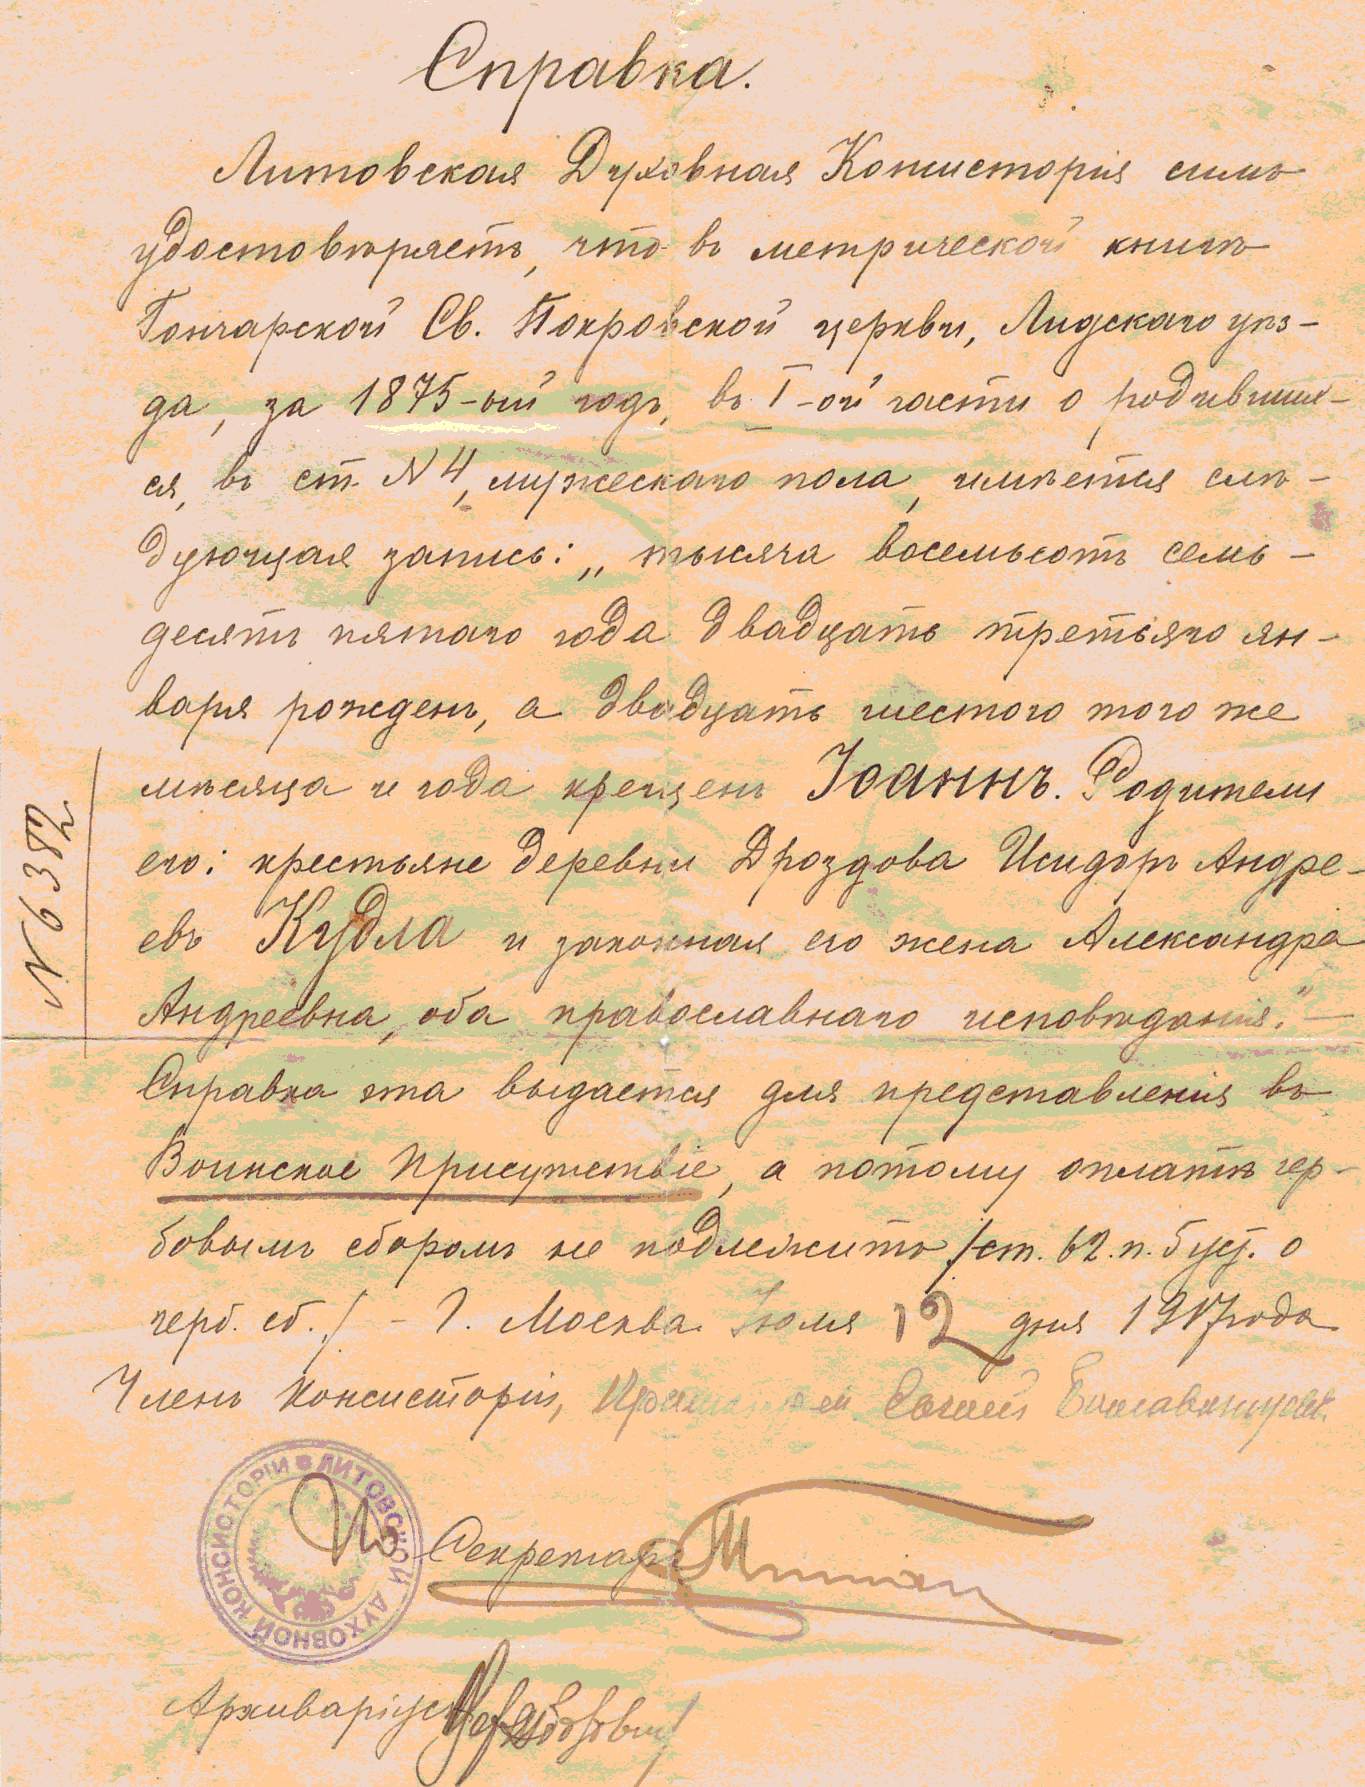 Справка.
Литовская Духовная Консисторія симъ
удостовѣряетъ, что въ метрической книгѣ
Гончарской Св. Покровской церкви, Лидскаго уѣз-
да, за 1875-ый годъ, въ I-ой части о родивших-
ся, въ ст. № 4, мужескаго пола, имѣется слѣ-
дующая запись: „тысяча восемьсотъ семь-
десятъ пятаго года двадцать третьяго ян-
варя рожденъ, а двадцать шестого того же
мѣсяца и года крещенъ Іоаннъ. Родители
его: крестьяне деревни Дроздова Исидоръ Андре-
евъ Кудла и законная его жена Александра
Андреевна, оба православнаго исповѣданія."—
Справка эта выдается для представленія въ
Воинское Присутствіе, а потому оплатѣ гер-
бовымъ сборомъ не подлежитъ /ст. 62. п. 5 уст. о
герб. сб./ - Г. Москва. Іюля 12 дня 1917 года
Членъ Консисторіи,
Секретарь
Архиваріусъ
№ 6382
ЛИТОВСКОЙ ДУХОВНОЙ КОНСИСТОРІИ